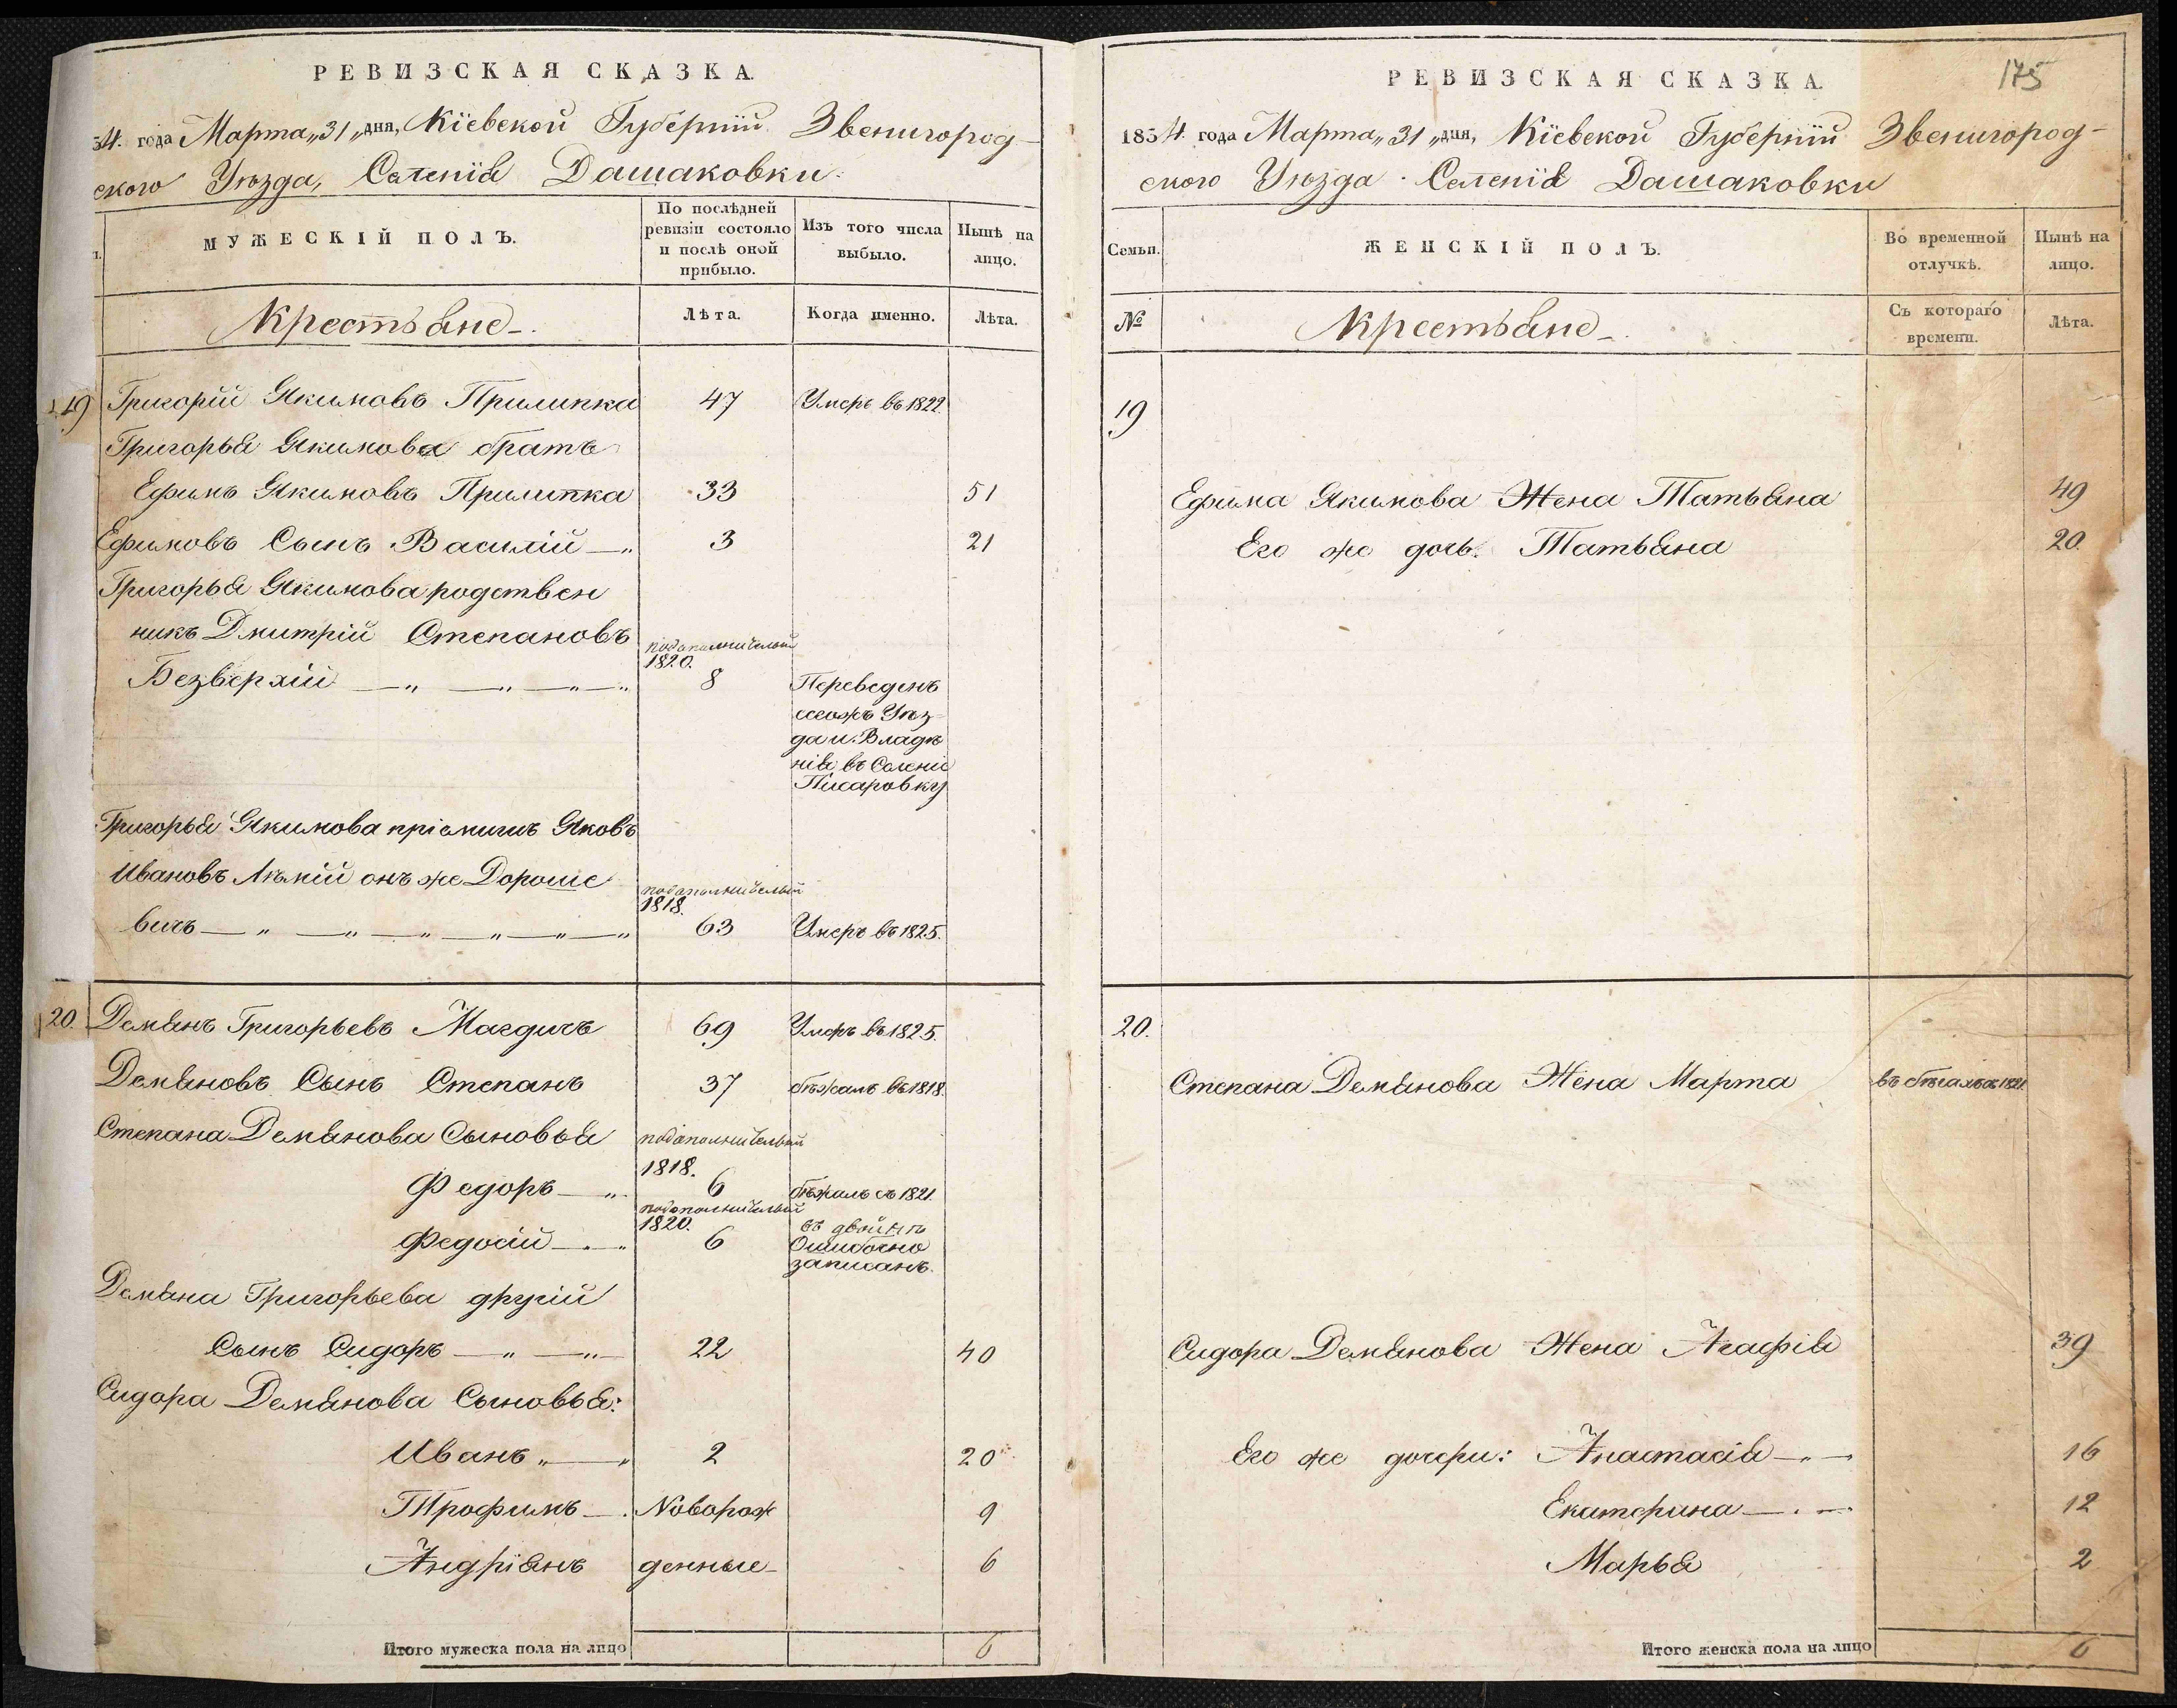 РЕВИЗСКАЯ СКАЗКА.
34. года Марта „31„ дня, Кіевской Губерніи Звенигород-
ского Уѣзда, Селенія Дашаковки.
МУЖЕСКІЙ ПОЛЪ.
По послѣдней ревизіи состояло и послѣ оной прибыло.
Изъ того числа выбыло.
Нынѣ на лицо.
Крестьяне.
Лѣта.
Когда именно.
Лѣта.
19 Григорій Якимовъ Прилипка 47 Умеръ въ 1822.
Григорья Якимова братъ
Ефимъ Якимовъ Прилипка 33 51
Ефимовъ Сынъ Василій 3 21
Григорья Якимова родствен
никъ Дмитрій Степановъ
подополнительной
1820.
Безверхій 8 Переведенъ
тогожъ Уѣз-
да и Владѣ
нія въ Селеніе
Писаровку
Григорья Якимова пріемышъ Яковъ
Ивановъ онъ же Дороше
подополнительной
1818.
вичъ 63 Умеръ въ 1825.
20. Демянъ Григорьевъ Магдичъ 69 Умеръ въ 1825.
Демяновъ Сынъ Степанъ 37 бѣжалъ въ 1818.
Степана Демянова Сыновья
подополнительной
1818.
Федоръ 6 бѣжалъ съ 1821.
подополнительной
1820.
Федосій 6 въ двойнѣ
Ошибочно
записанъ.
Демяна Григорьева другій
Сынъ Сидоръ 22 40
Сидора Демянова Сыновья:
Иванъ 2 20
Трофимъ Новорож 9
Андріянъ денные 6
Итого мужеска пола на лицо 6
175
РЕВИЗСКАЯ СКАЗКА.
1834. года Марта „31„ дня, Кіевской Губерніи Звенигород-
ского Уѣзда. Селенія Дашаковки
Семьи.
ЖЕНСКІЙ ПОЛЪ.
Во временной отлучкѣ.
Нынѣ на лицо.
№
Крестьяне.
Съ котораго времени.
Лѣта.
19
Ефима Якимова Жена Татьяна 49
Его же дочь. Татьяна 20.
20.
Степана Демянова Жена Марта въ бѣгахъ съ 1821.
Сидора Демянова Жена Агафія 39
Его же дочери: Анастасія 16
Екатерина 12
Марья 2
Итого женска пола на лицо 6